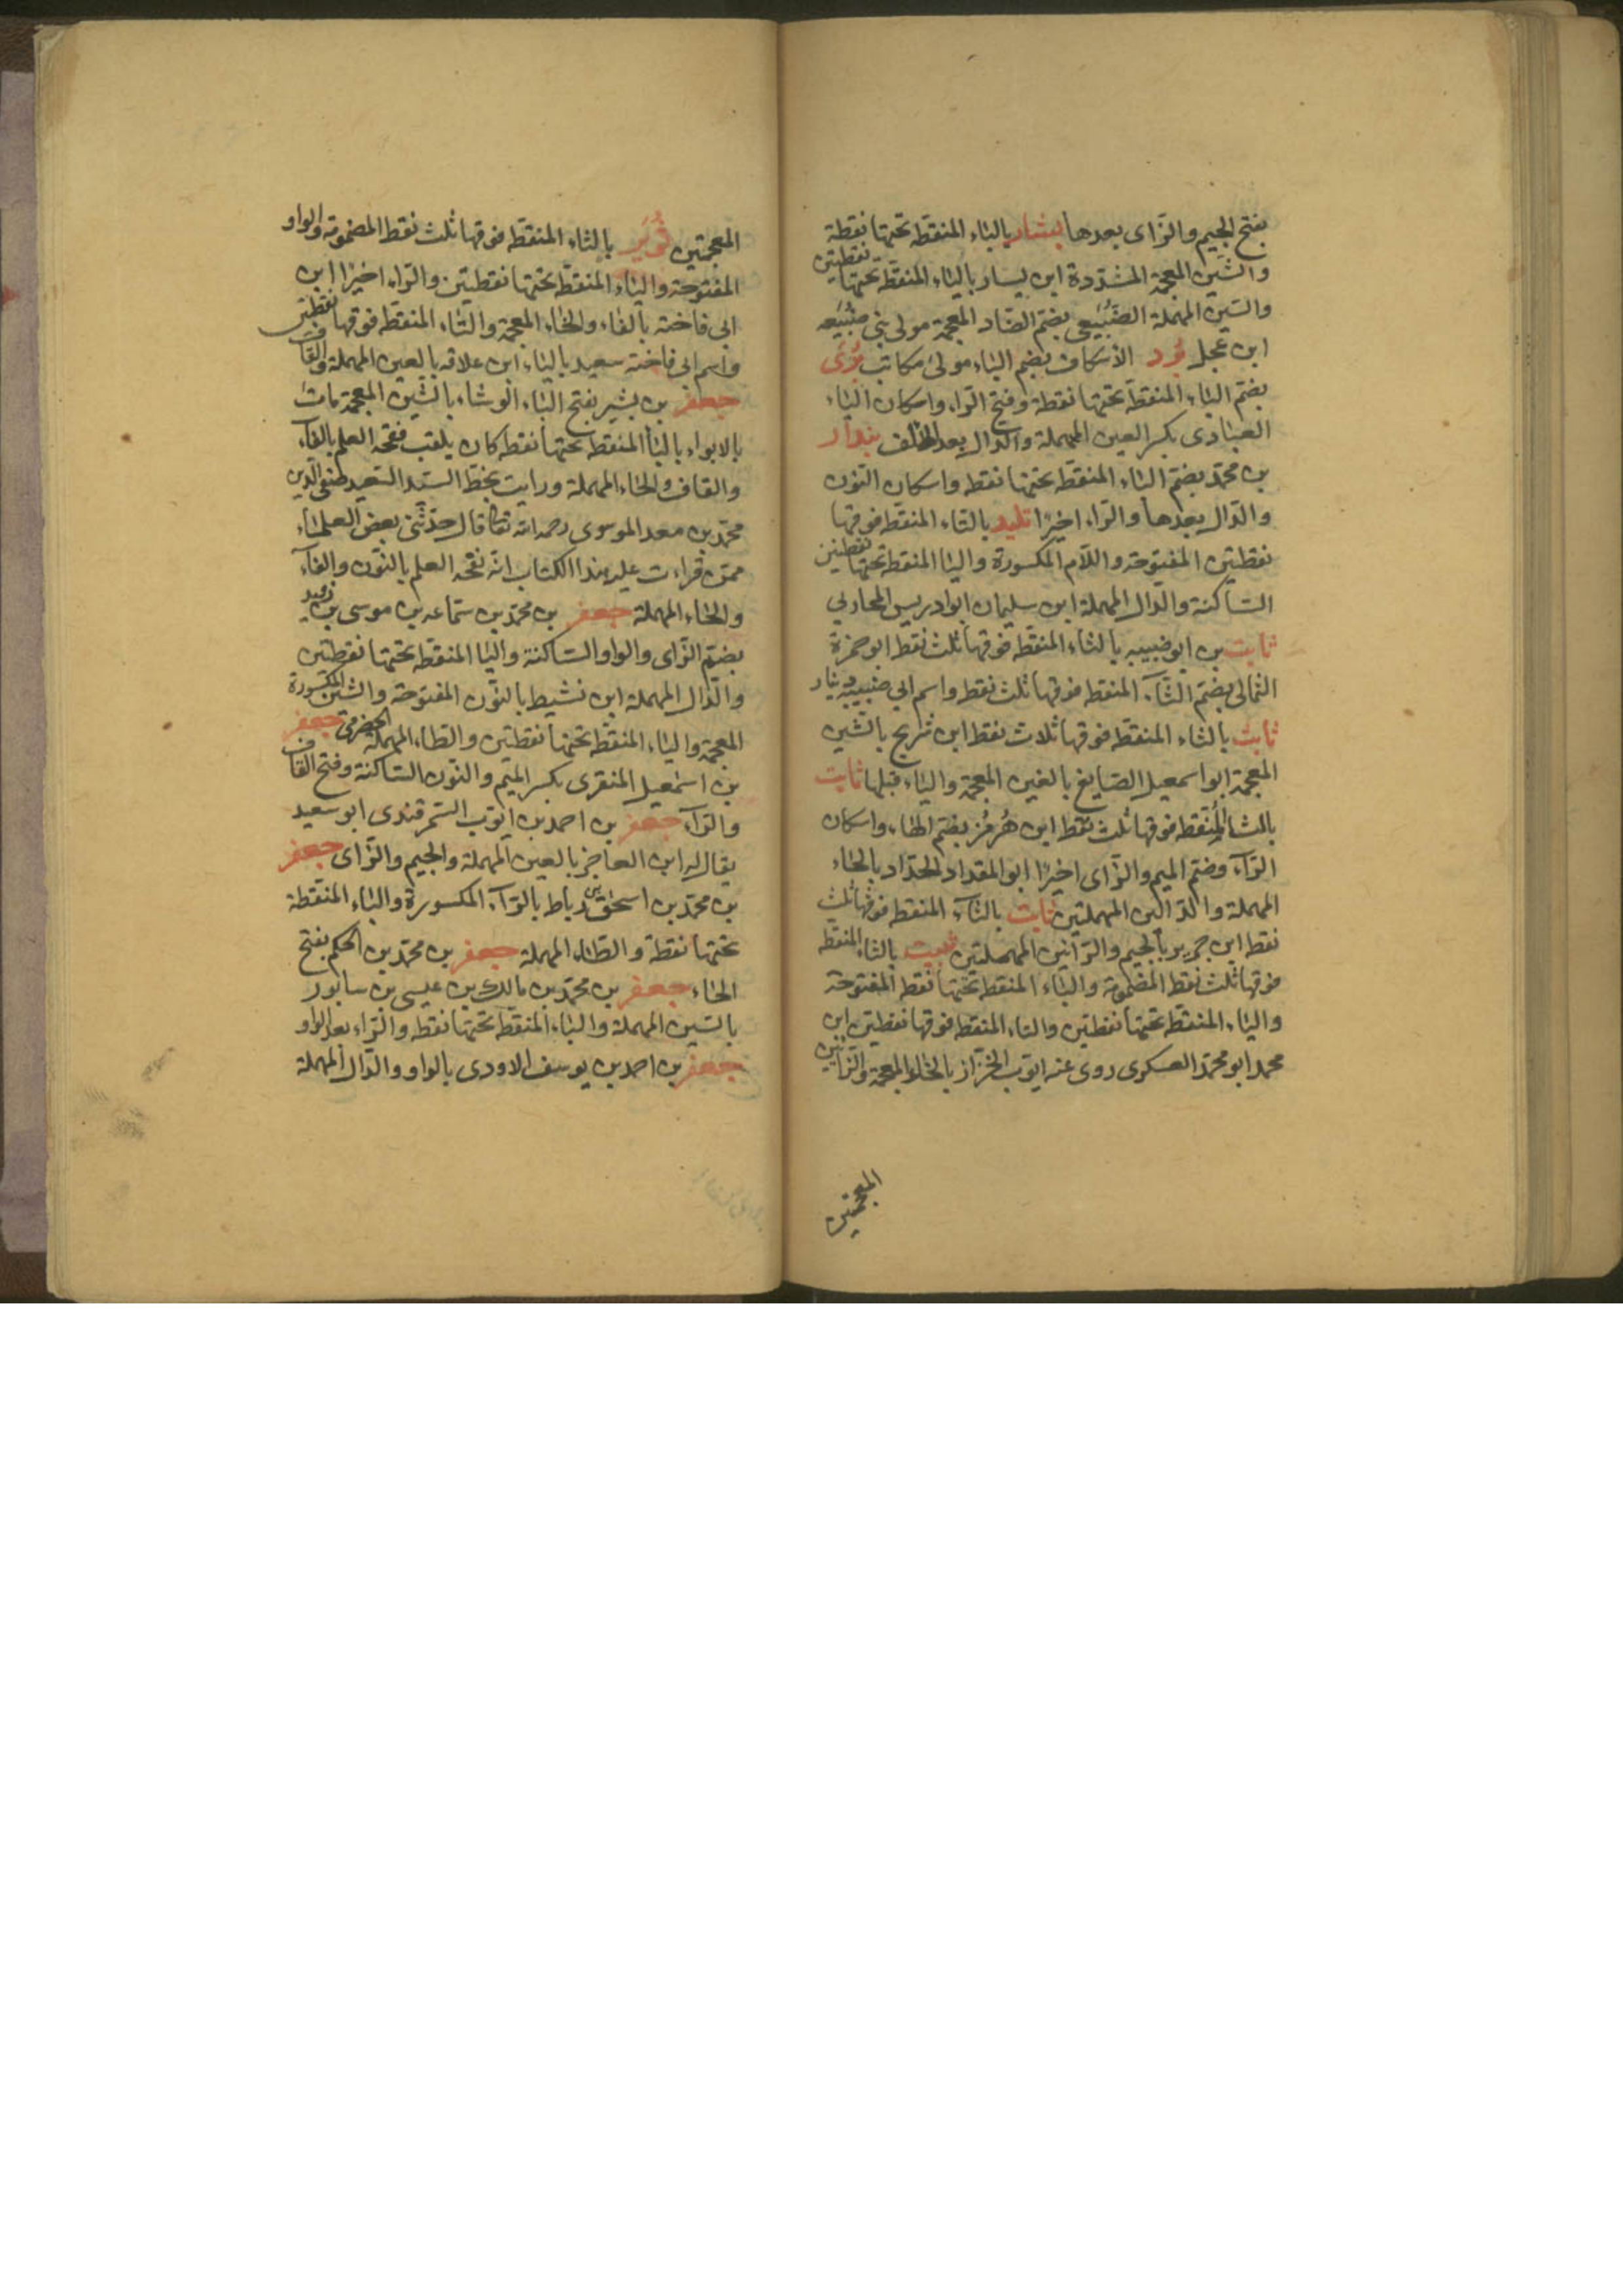 بفتح الجيم والزاى بعدها بشار بالباء المنقطه تحتها نقطة
والشين المعجمة المشددة ابن يسار بالياء المنقطة تحتها نقطتين
والسين المهملة الضبيعى بضم الضاد المعجمة مولى بنى ضبيعه
ابن عجل برد الأسكاف بضم الباء مولى مكاتب
بضم الباء المنقطة تحتها نقطة وفتح الراء واسكان الياء
العبادى بكسر العين المهملة والدال بعد الالف بندار
بن محمد بضم الباء المنقطة تحتها نقطه واسكان النون
والدال بعدها والراء اخيرا تليد بالتاء المنقطه فوقها
نقطتين المفتوحة واللام المكسورة واليا المنقطه تحتها نقطتين
الساكنة والدال المهملة ابن سليمان ابوادريس المحاربي
ثابت بن ابوضبيبه بالثاء المنقطه فوقها ثلث نقط ابوحمزة
الثمالى بضم الثآء المنقطه فوقها ثلث نقط واسم ابي ضبيبه دينار
ثابت بالثاء المنقطه فوقها ثلاث نقط ابن شريح بالشين
المعجمة ابواسمعيل الصايغ بالغين المعجمة والياء قبلها ثابت
بالثا المنقطه فوقها ثلث نقط ابن هرمز بضم الهاء واسكان
الرآء وضم الميم والزاى اخيرا ابوالمقداد الحداد بالحاء
المهملة والدالين المهملتين ثابت بالثآء المنقطه فوقها ثلث
نقط ابن جرير بالجيم والرآئين المهملتين ثبيت بالثاء المنقطه
فوقها ثلث نقط المضمومة والباء المنقطه تحتها نقط المفتوحة
والياء المنقطه تحتها نقطتين والتاء المنقطه فوقها نقطتين ابن
محمد ابومحمد العسكرى روى عنه ايوب الخزاز بالخاء المعجمة والزائين
المعجمتين
المعجمتين ثوير بالثاء المنقطه فوقها ثلث نقط المضمومة والواو
المفتوحة والياء المنقطه تحتها نقطتين والراء اخيرا ابن
ابى فاخته بالفاء والخاء المعجمة والتاء المنقطه فوقها نقطتين
واسم ابى فاخته سعيد بالياء ابن علاقه بالعين المهملة والقاف
جعفر بن بشير بفتح الباء الوشاء بالشين المعجمة مات
بالابواء بالبا المنقطه تحتها نقطه كان يلقب فقحة العلم بالفآء
والقاف والحاء المهملة ورايت بخط السيد السعيد صفى الدين
محمد بن معد الموسوى رحمه الله تعالى قال حدثنى بعض العلماء
ممن قراءت عليه هذا الكتاب انه نفحة العلم بالنون والفآء
والحاء المهملة جعفر بن محمد بن سماعه بن موسى بن زويد
بضم الزاى والواو الساكنة واليا المنقطه تحتها نقطتين
والدال المهملة ابن نشيط بالنون المفتوحة والشين المكسورة
المعجمة والياء المنقطه تحتها نقطتين والطاء المهملة الحضرمى جعفر
بن اسمعيل المنقرى بكسر الميم والنون الساكنة وفتح القاف
والرآء جعفر بن احمد بن ايوب السمرقندى ابوسعيد
يقال له ابن العاجز بالعين المهملة والجيم والزاى جعفر
بن محمد بن اسحق بن رباط بالرآء المكسورة والباء المنقطة
تحتها نقطة والطاء المهملة جعفر بن محمد بن الحكم بفتح
الحاء جعفر بن محمد بن مالك بن عيسى بن سابور
بالسين المهملة والباء المنقطه تحتها نقطه والراء بعد الواو
جعفر بن احمد بن يوسف الاودى بالواو والدال المهملة